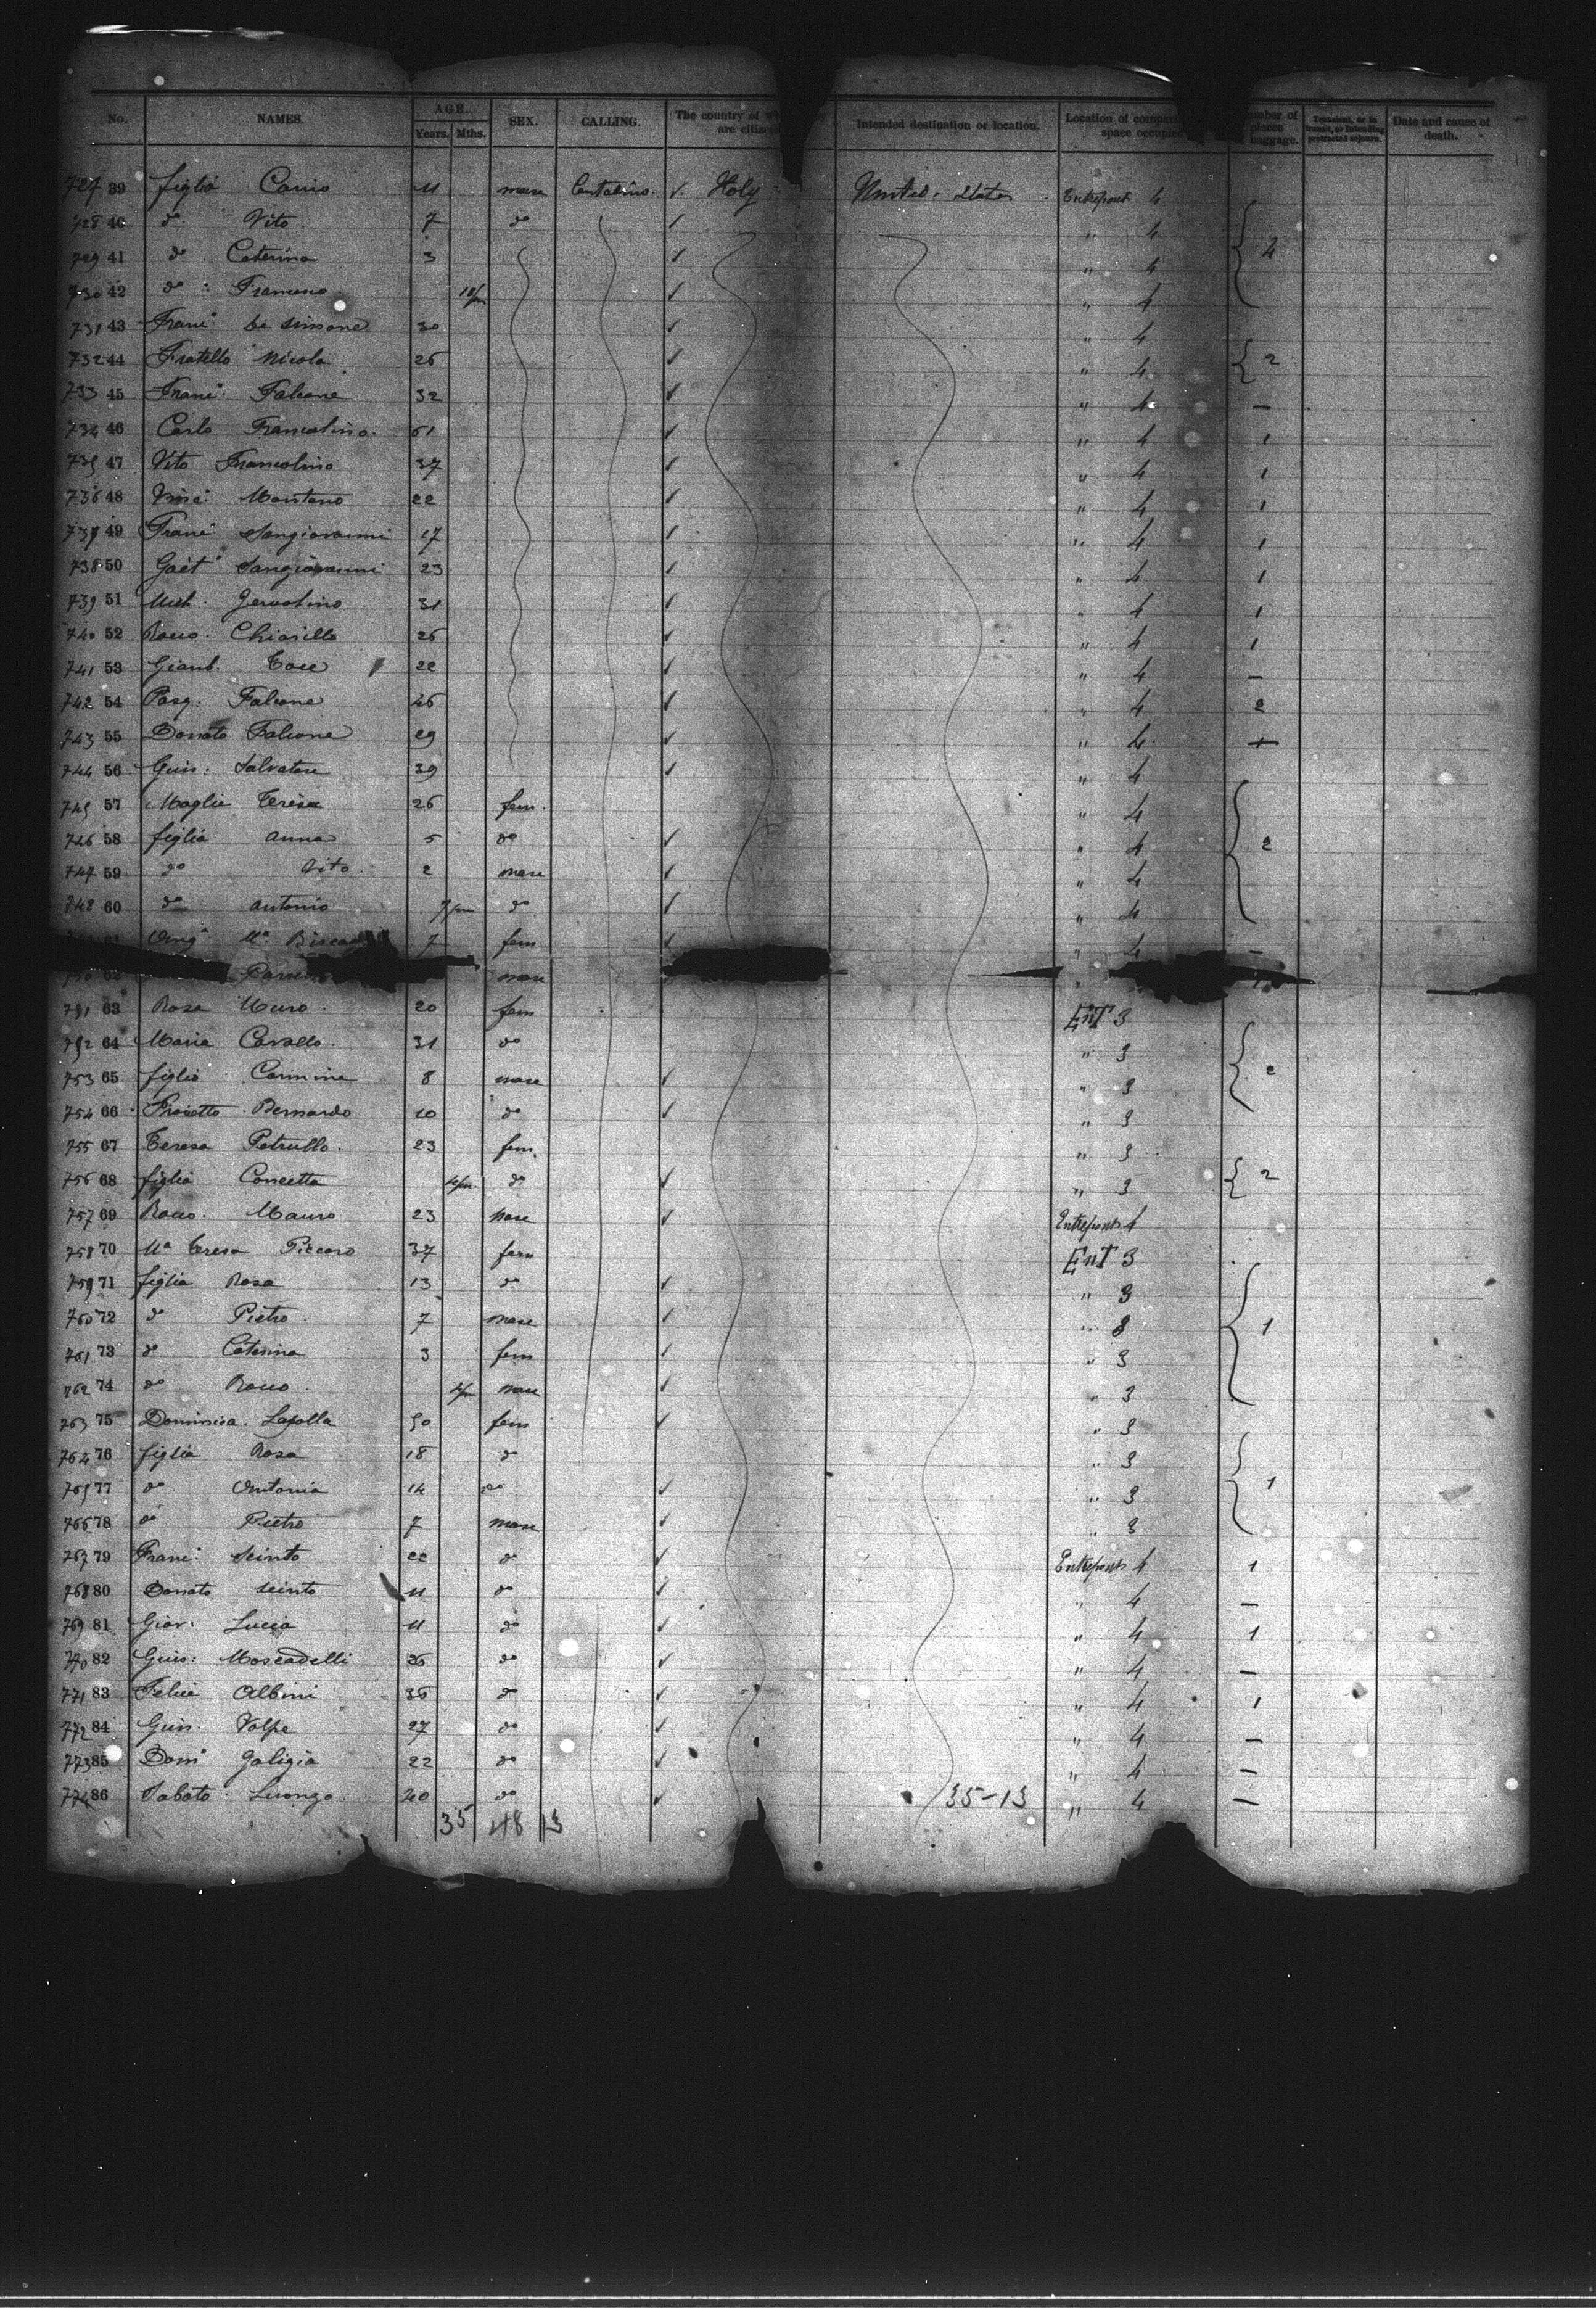 No. NAMES. AGE. Years. Mths. SEX. CALLING. The country of are citizen Intended destination or location. Location of compar space occupied Number of pieces baggage. Transient, or in transit, or intending protracted sojourn. Date and cause of death.
727 39 figlio Canio 11 masc Contadino Italy United States Entrepont 4
728 40 do Vito 7 do " 4
729 41 do Caterina 3 " 4 4
730 42 do 18/m " 4
731 43 Franc: De Simone 30 " 4
732 44 Fratello Nicola 26 " 4 2
733 45 Franc: Falcone 32 " 4 —
734 46 Carlo Francolino 61 " 4 1
735 47 Vito Francolino 37 " 4 1
736 48 Vinc: Montano 22 " 4 1
737 49 Franc: Sangiovanni 17 " 4 1
738 50 Gaet Sangiovanni 23 " 4 1
739 51 Mich. 31 " 4 1
740 52 Rocco Chiariello 26 " 4 1
741 53 22 " 4 —
742 54 Pasq: Falcone 46 " 4 2
743 55 Donato Falcone 29 " 4
744 56 Guis: Salvatore 39 " 4
745 57 Moglie Teresa 26 fem. " 4
746 58 figlia Anna 5 do " 4 2
747 59 do Vito 2 masc " 4
748 60 do Antonio 7/m do " 4
Ma 7 fem " 4 —
masc
751 63 Rosa Muro 20 fem EnT 3
752 64 Maria Cavallo 31 do " 3
753 65 figlio Carmine 8 masc " 3 2
754 66 Bernardo 10 do " 3
755 67 Teresa Petrullo 23 fem. " 3
756 68 figlia Concetta do " 3 2
757 69 Rocco Mauro 23 masc Entrepont 4
758 70 Ma Teresa Piccaro 37 fem EnT 3
759 71 figlia Rosa 13 do " 3
760 72 do Pietro 7 masc " 3 1
761 73 do Caterina 3 fem " 3
762 74 do Rocco masc " 3
763 75 Dominica Lapolla 50 fem " 3
764 76 figlia Rosa 18 do " 3
765 77 do Antonia 14 do " 3 1
766 78 do Pietro 7 masc " 3
767 79 Franc: Scinto 22 do Entrepont 4 1
768 80 Donato Scinto 11 do " 4 —
769 81 Giov: Lucia 11 do " 4 1
770 82 Guis: Moscadelli 26 do " 4 —
771 83 Felice Albini 36 do " 4 1
772 84 Guis. Volpe 27 do " 4 —
773 85 Dom Galigia 22 do " 4 —
774 86 Sabato Luongo 40 do 35-13 " 4 —
35 48 13